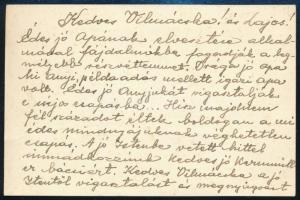 Kedves Vilmácska! és Lajos!
Édes jó Apának elvesztése alkal-
mával fájdalmukba fogadják a leg-
mélyebb részvétemmet. Drága jó apa
ki annyi, példaadás mellett igazi apa
volt. Édes jó Anyjukat vigasztalják
e nagy csapásba. Hisz majdnem
fél századot éltek boldogan a mi
édes mindnyájuknak véghetetlen
csapás. A jó Istenbe vetett hittel
Kedves jó
bácsiért. Kedves Vilmácska a jó
Istentől vigasztalást és megnyugvást